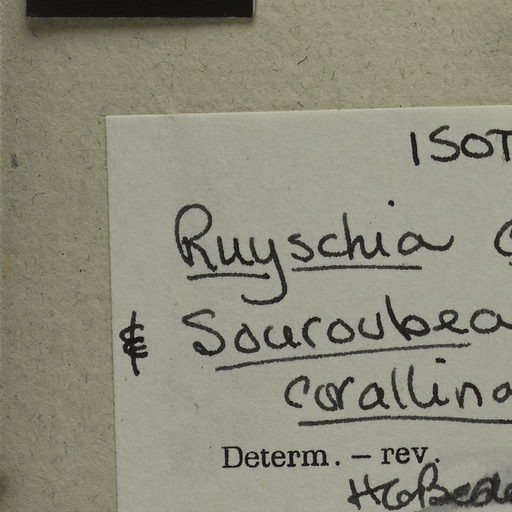 ISOT
Ruyschia
& Souroubea
corallina
Determ. – rev.